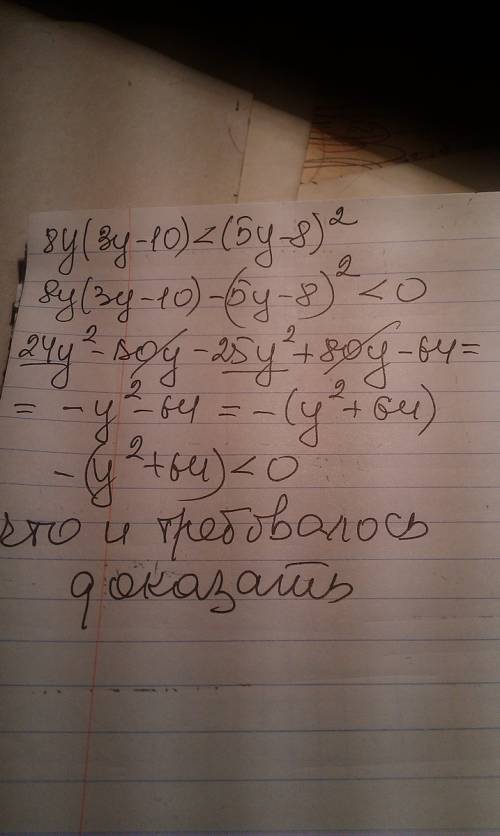 8y(3y-10)<(5y-8)²
8y(3y-10)-(5y-8)²<0
24y²-80y-25y²+80y-64=
= -y²-64 = -(y²+64)
-(y²+64)<0
что и требовалось
доказать